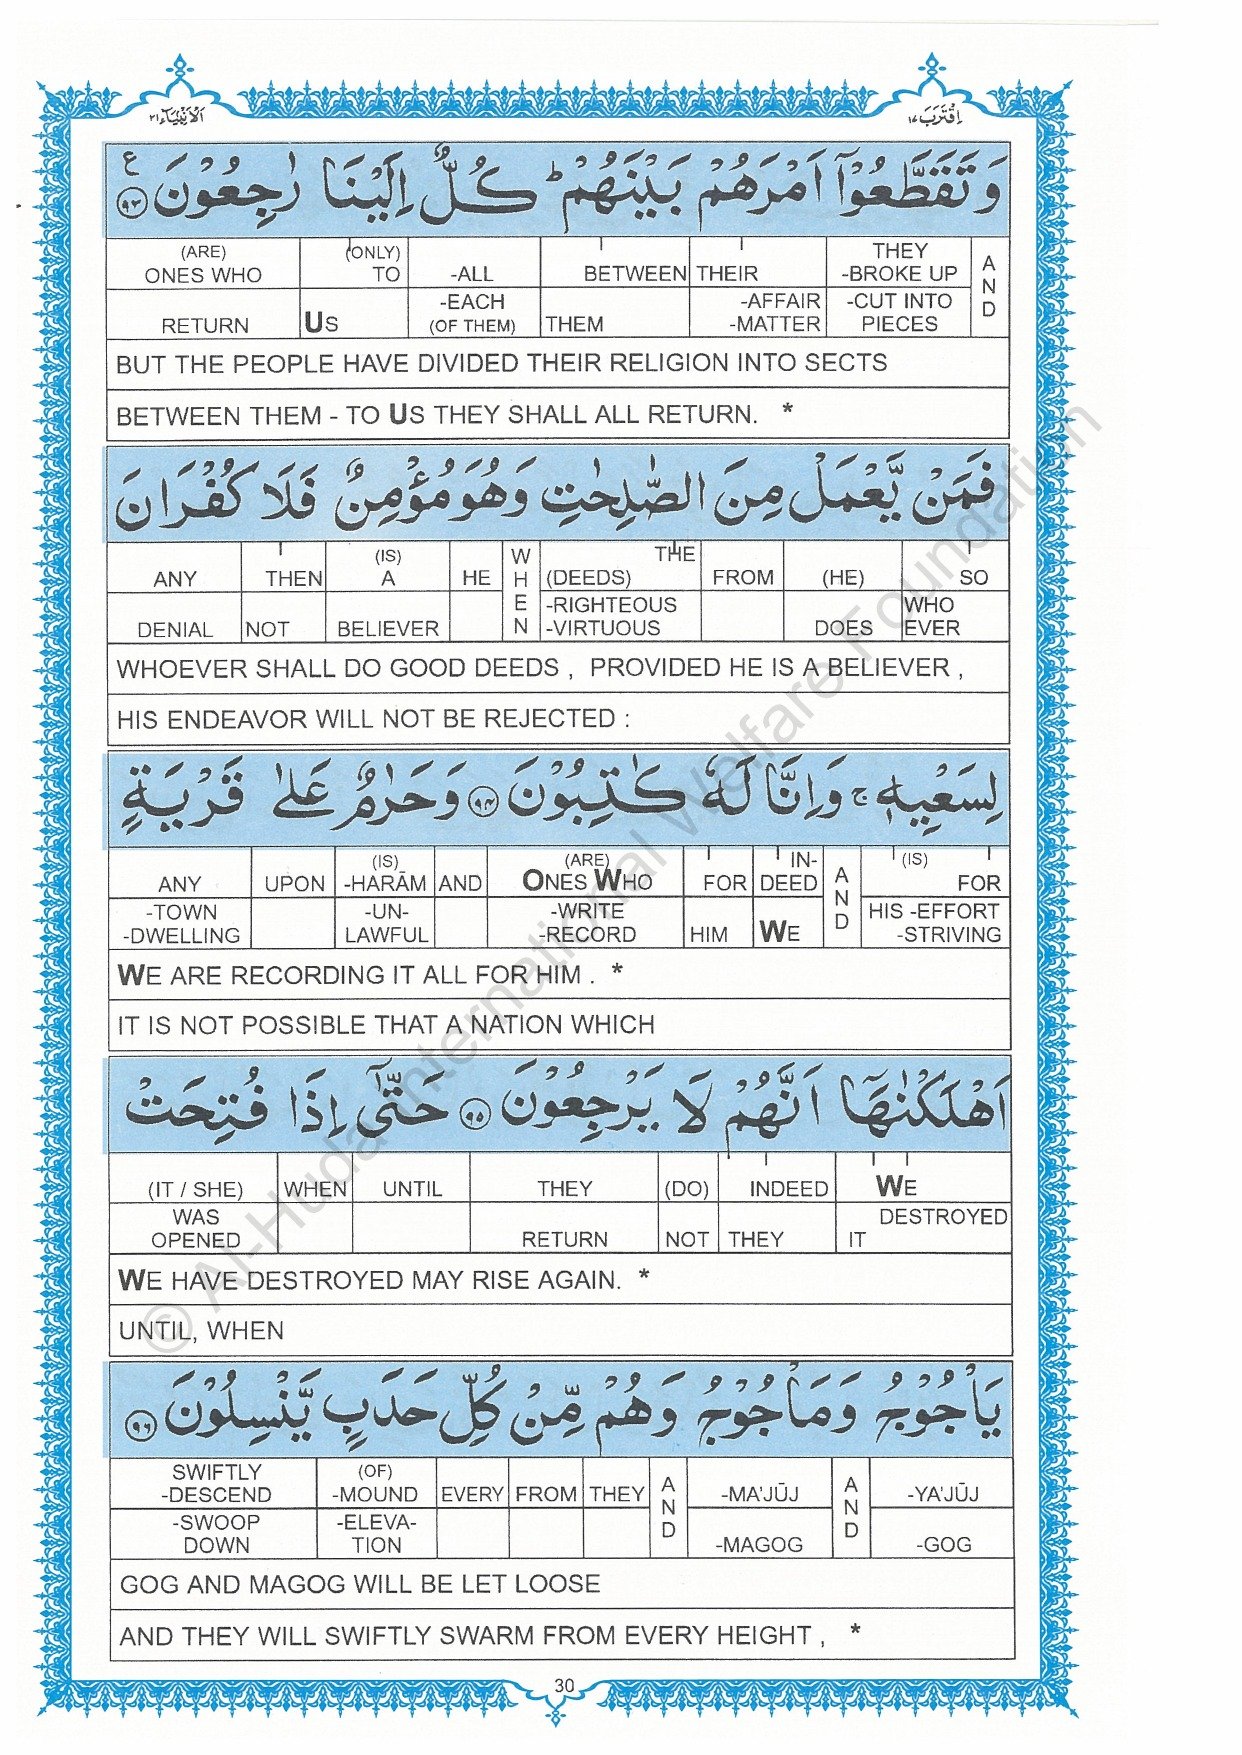 اِقْتَرَبَ ١٧
اَلْاَنْبِيَآء ٢١
وَ تَقَطَّعُوْٓا اَمْرَهُمْ بَيْنَهُمْ ؕ كُلٌّ اِلَيْنَا رٰجِعُوْنَ ۩٩٣ ع
(ARE) (ONLY) THEY A
ONES WHO TO -ALL BETWEEN THEIR -BROKE UP N
-EACH -AFFAIR -CUT INTO D
RETURN US (OF THEM) THEM -MATTER PIECES
BUT THE PEOPLE HAVE DIVIDED THEIR RELIGION INTO SECTS
BETWEEN THEM - TO US THEY SHALL ALL RETURN. *
فَمَنْ يَّعْمَلْ مِنَ الصّٰلِحٰتِ وَهُوَ مُؤْمِنٌ فَلَا كُفْرَانَ
(IS) W THE
ANY THEN A HE H (DEEDS) FROM (HE) SO
E -RIGHTEOUS WHO
DENIAL NOT BELIEVER N -VIRTUOUS DOES EVER
WHOEVER SHALL DO GOOD DEEDS , PROVIDED HE IS A BELIEVER ,
HIS ENDEAVOR WILL NOT BE REJECTED :
لِسَعْيِهٖ ج وَاِنَّا لَهٗ كٰتِبُوْنَ ٩٤ وَحَرٰمٌ عَلٰى قَرْيَةٍ
(IS) (ARE) IN- A (IS)
ANY UPON -HARĀM AND ONES WHO FOR DEED N FOR
-TOWN -UN- -WRITE D HIS -EFFORT
-DWELLING LAWFUL -RECORD HIM WE -STRIVING
WE ARE RECORDING IT ALL FOR HIM . *
IT IS NOT POSSIBLE THAT A NATION WHICH
اَهْلَكْنٰهَآ اَنَّهُمْ لَا يَرْجِعُوْنَ ٩٥ حَتّٰٓى اِذَا فُتِحَتْ
(IT / SHE) WHEN UNTIL THEY (DO) INDEED WE
WAS DESTROYED
OPENED RETURN NOT THEY IT
WE HAVE DESTROYED MAY RISE AGAIN. *
UNTIL, WHEN
يَاْجُوْجُ وَمَاْجُوْجُ وَهُمْ مِّنْ كُلِّ حَدَبٍ يَّنْسِلُوْنَ ٩٦
SWIFTLY (OF) A A
-DESCEND -MOUND EVERY FROM THEY N -MA'JŪJ N -YA'JŪJ
-SWOOP -ELEVA- D D
DOWN TION -MAGOG -GOG
GOG AND MAGOG WILL BE LET LOOSE
AND THEY WILL SWIFTLY SWARM FROM EVERY HEIGHT , *
30
© Al-Huda International Welfare Foundation